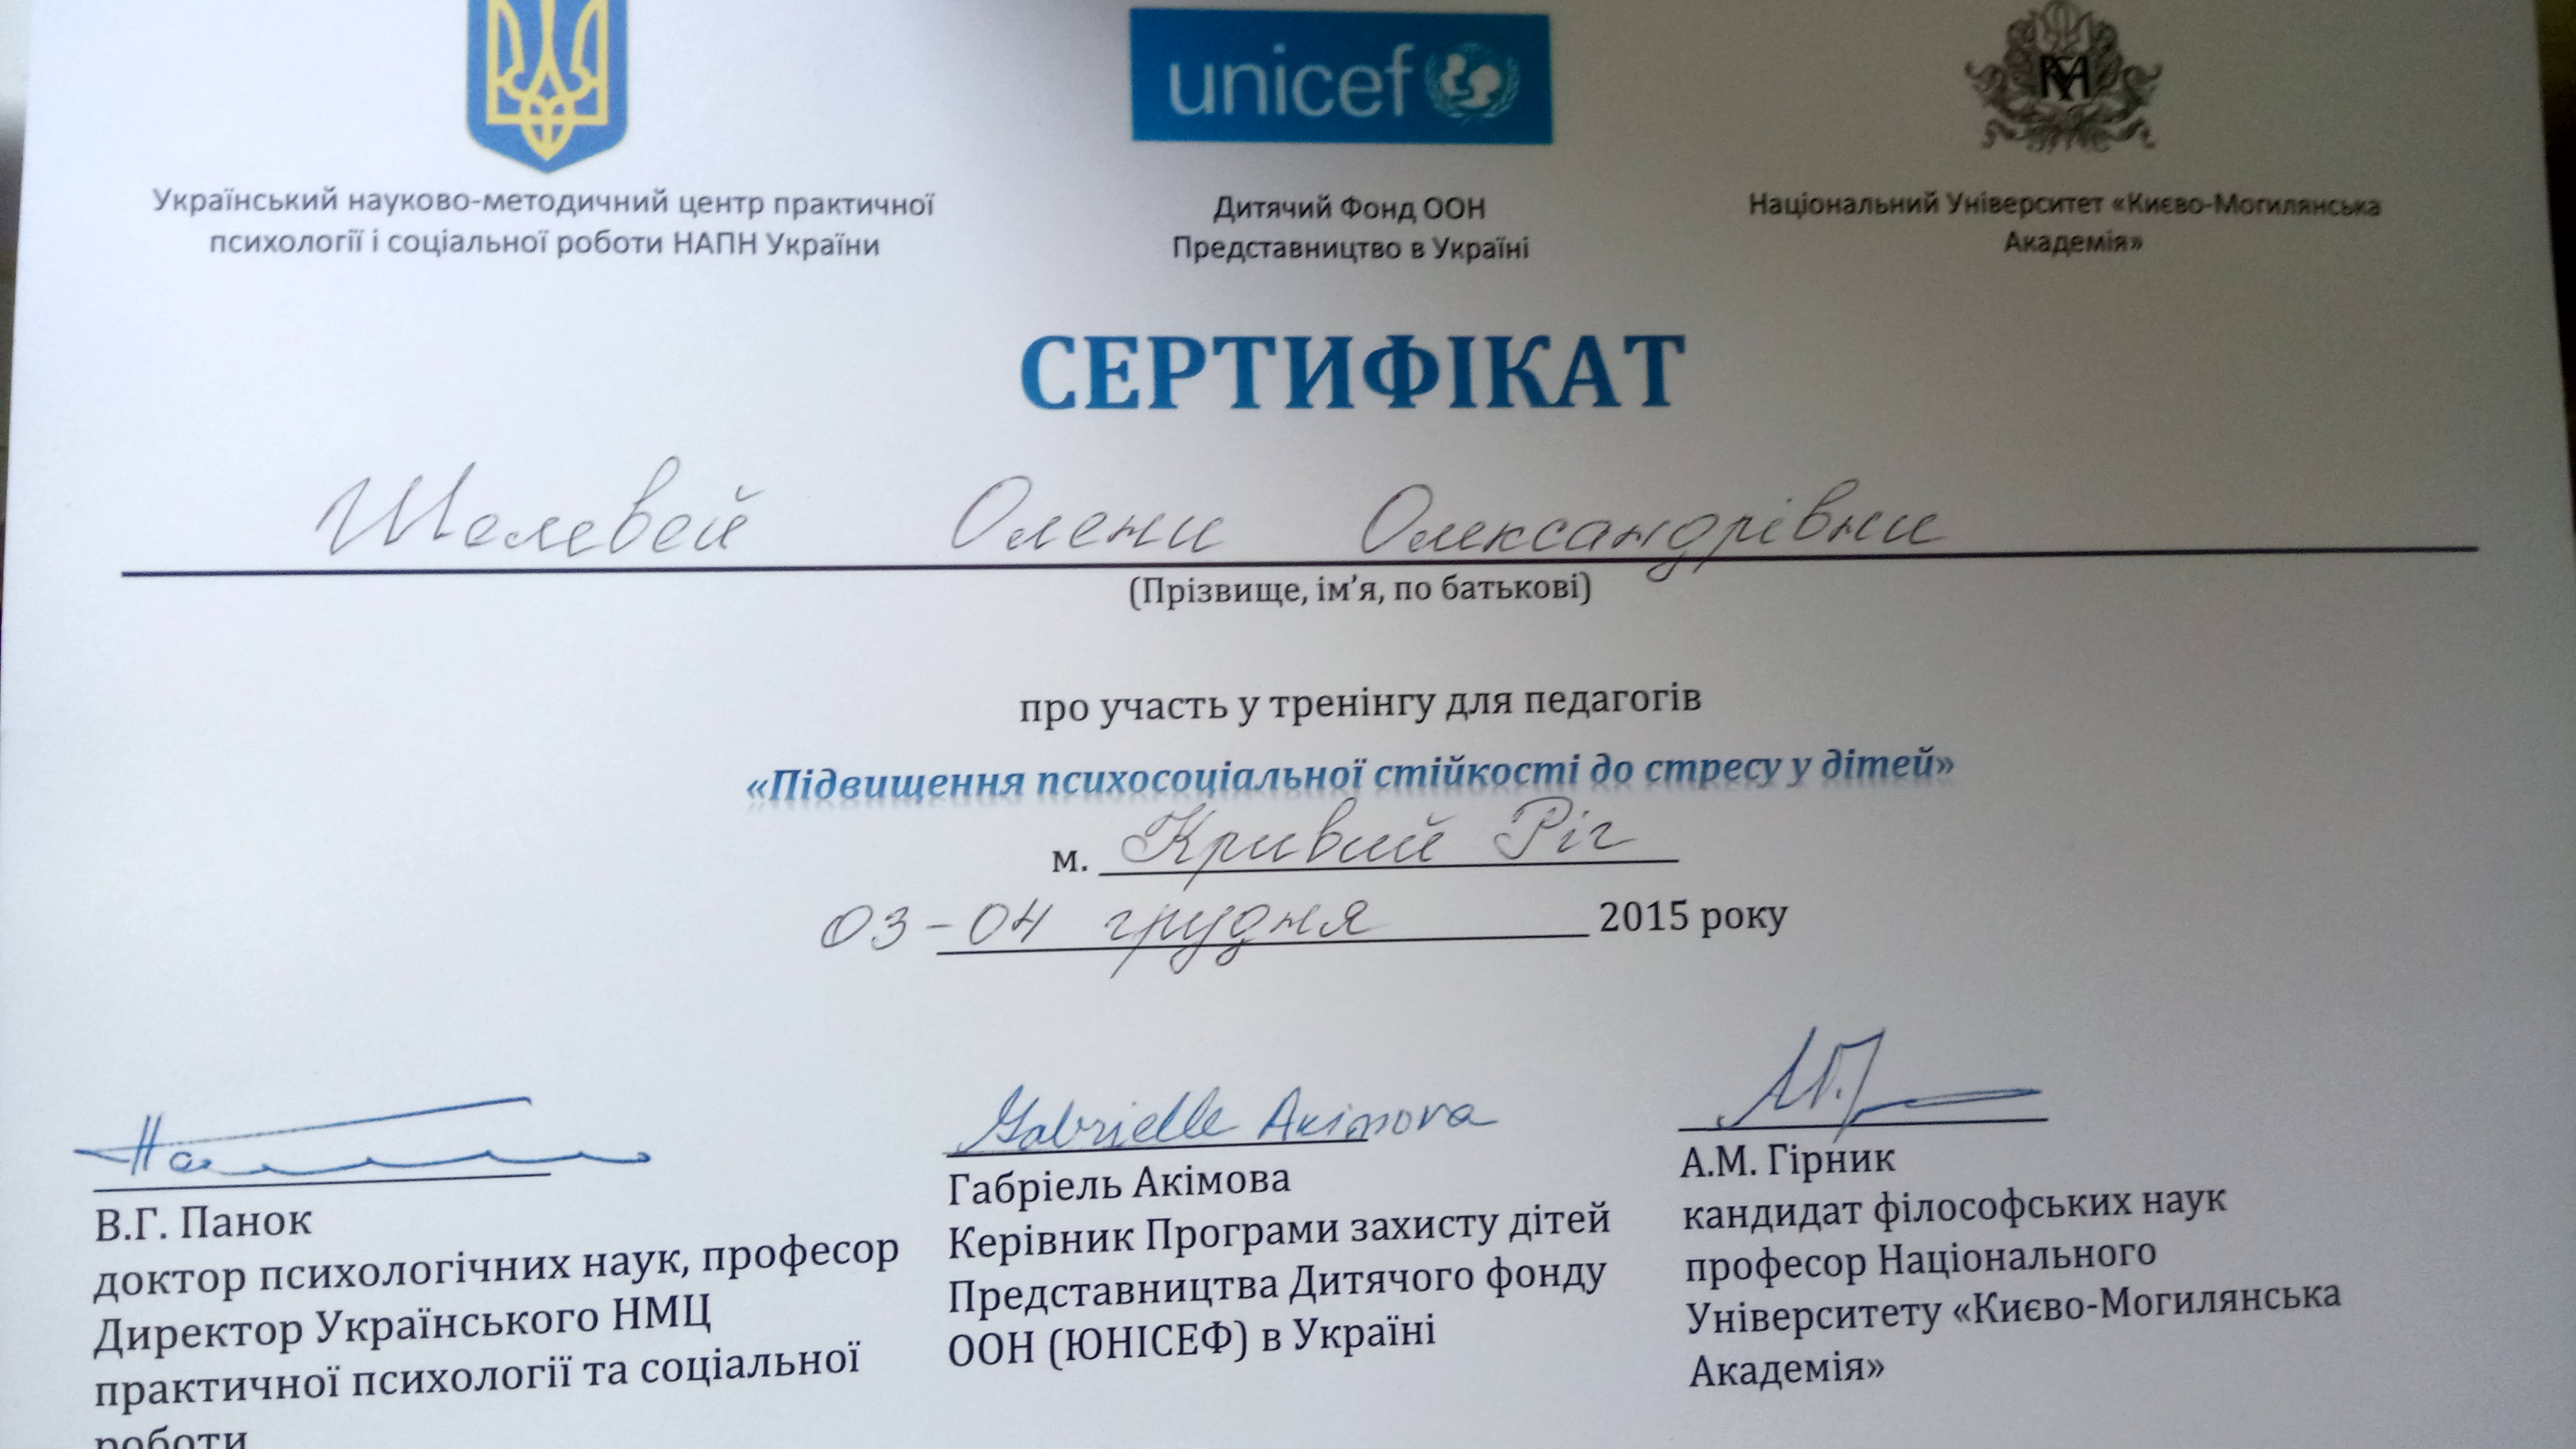 unicef
Український науково-методичний центр практичної
психології і соціальної роботи НАПН України
Дитячий Фонд ООН
Представництво в Україні
Національний Університет «Києво-Могилянська
Академія»
СЕРТИФІКАТ
Олени Олександрівни
(Прізвище, ім’я, по батькові)
про участь у тренінгу для педагогів
«Підвищення психосоціальної стійкості до стресу у дітей»
м. Кривий Ріг
03-04 грудня 2015 року
Gabrielle Akimova
В.Г. Панок
доктор психологічних наук, професор
Директор Українського НМЦ
практичної психології та соціальної
роботи
Габріель Акімова
Керівник Програми захисту дітей
Представництва Дитячого фонду
ООН (ЮНІСЕФ) в Україні
А.М. Гірник
кандидат філософських наук
професор Національного
Університету «Києво-Могилянська
Академія»